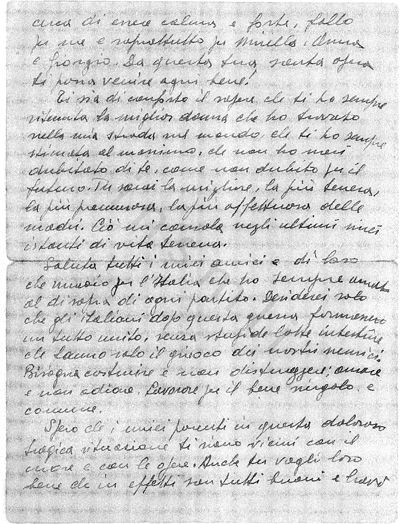 cura di essere calma e forte, fallo
per me e soprattutto per Mirella, Anna
e Giorgio. Da questa tua santa opera
ti possa venire ogni bene!
Ti sia di conforto il sapere che ti ho sempre
ritenuta la miglior donna che ho trovato
nella mia strada nel mondo, che ti ho sempre
stimata al massimo, che non ho mai
dubitato di te, come non dubito per il
futuro. Tu sarai la migliore, la più tenera,
la più premurosa, la più affettuosa delle
madri. Ciò mi consola negli ultimi miei
istanti di vita terrena.
Saluta tutti i miei amici e dì loro
che muoio per l'Italia che ho sempre amato
al di sopra di ogni partito. Desidererei solo
che gli Italiani dopo questa guerra formassero
un tutto unito, senza stupide lotte intestine
che fanno solo il giuoco dei nostri nemici.
Bisogna costruire e non distruggere; amare
e non odiare. Lavorare per il bene singolo e
comune.
Spero che i miei parenti in questa dolorosa
tragica situazione ti siano vicini con il
cuore e con le opere. Anche tu vogli loro
bene che in effetti son tutti buoni e bravi